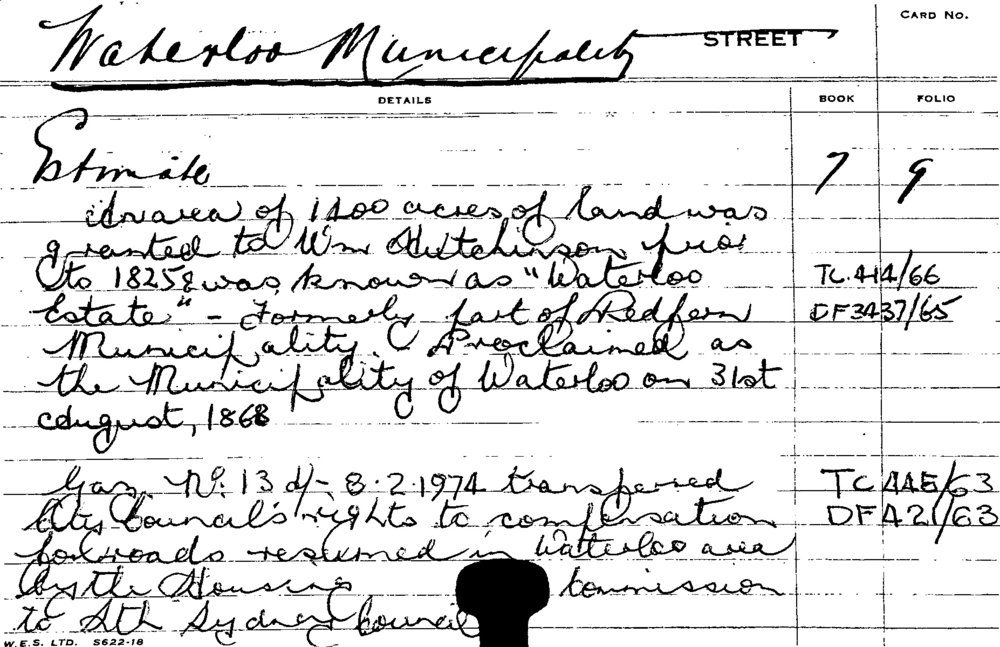 CARD No.
Waterloo Municipality STREET
DETAILS BOOK FOLIO
Estimate 7 9
An area of 1400 acres of land was
granted to Wm Hutchinson prior
to 1825 & was known as "Waterloo TC.414/66
Estate" - Formerly part of Redfern DF3437/65
Municipality. Proclaimed as
the Municipality of Waterloo on 31st
August, 1868
Gaz. No. 13 d/- 8.2.1974 transferred TC 445/63
City Council's rights to compensation DF421/63
for roads resumed in Waterloo area
by the Housing Commission
to Sth Sydney Council
W.E.S. LTD. S622-18